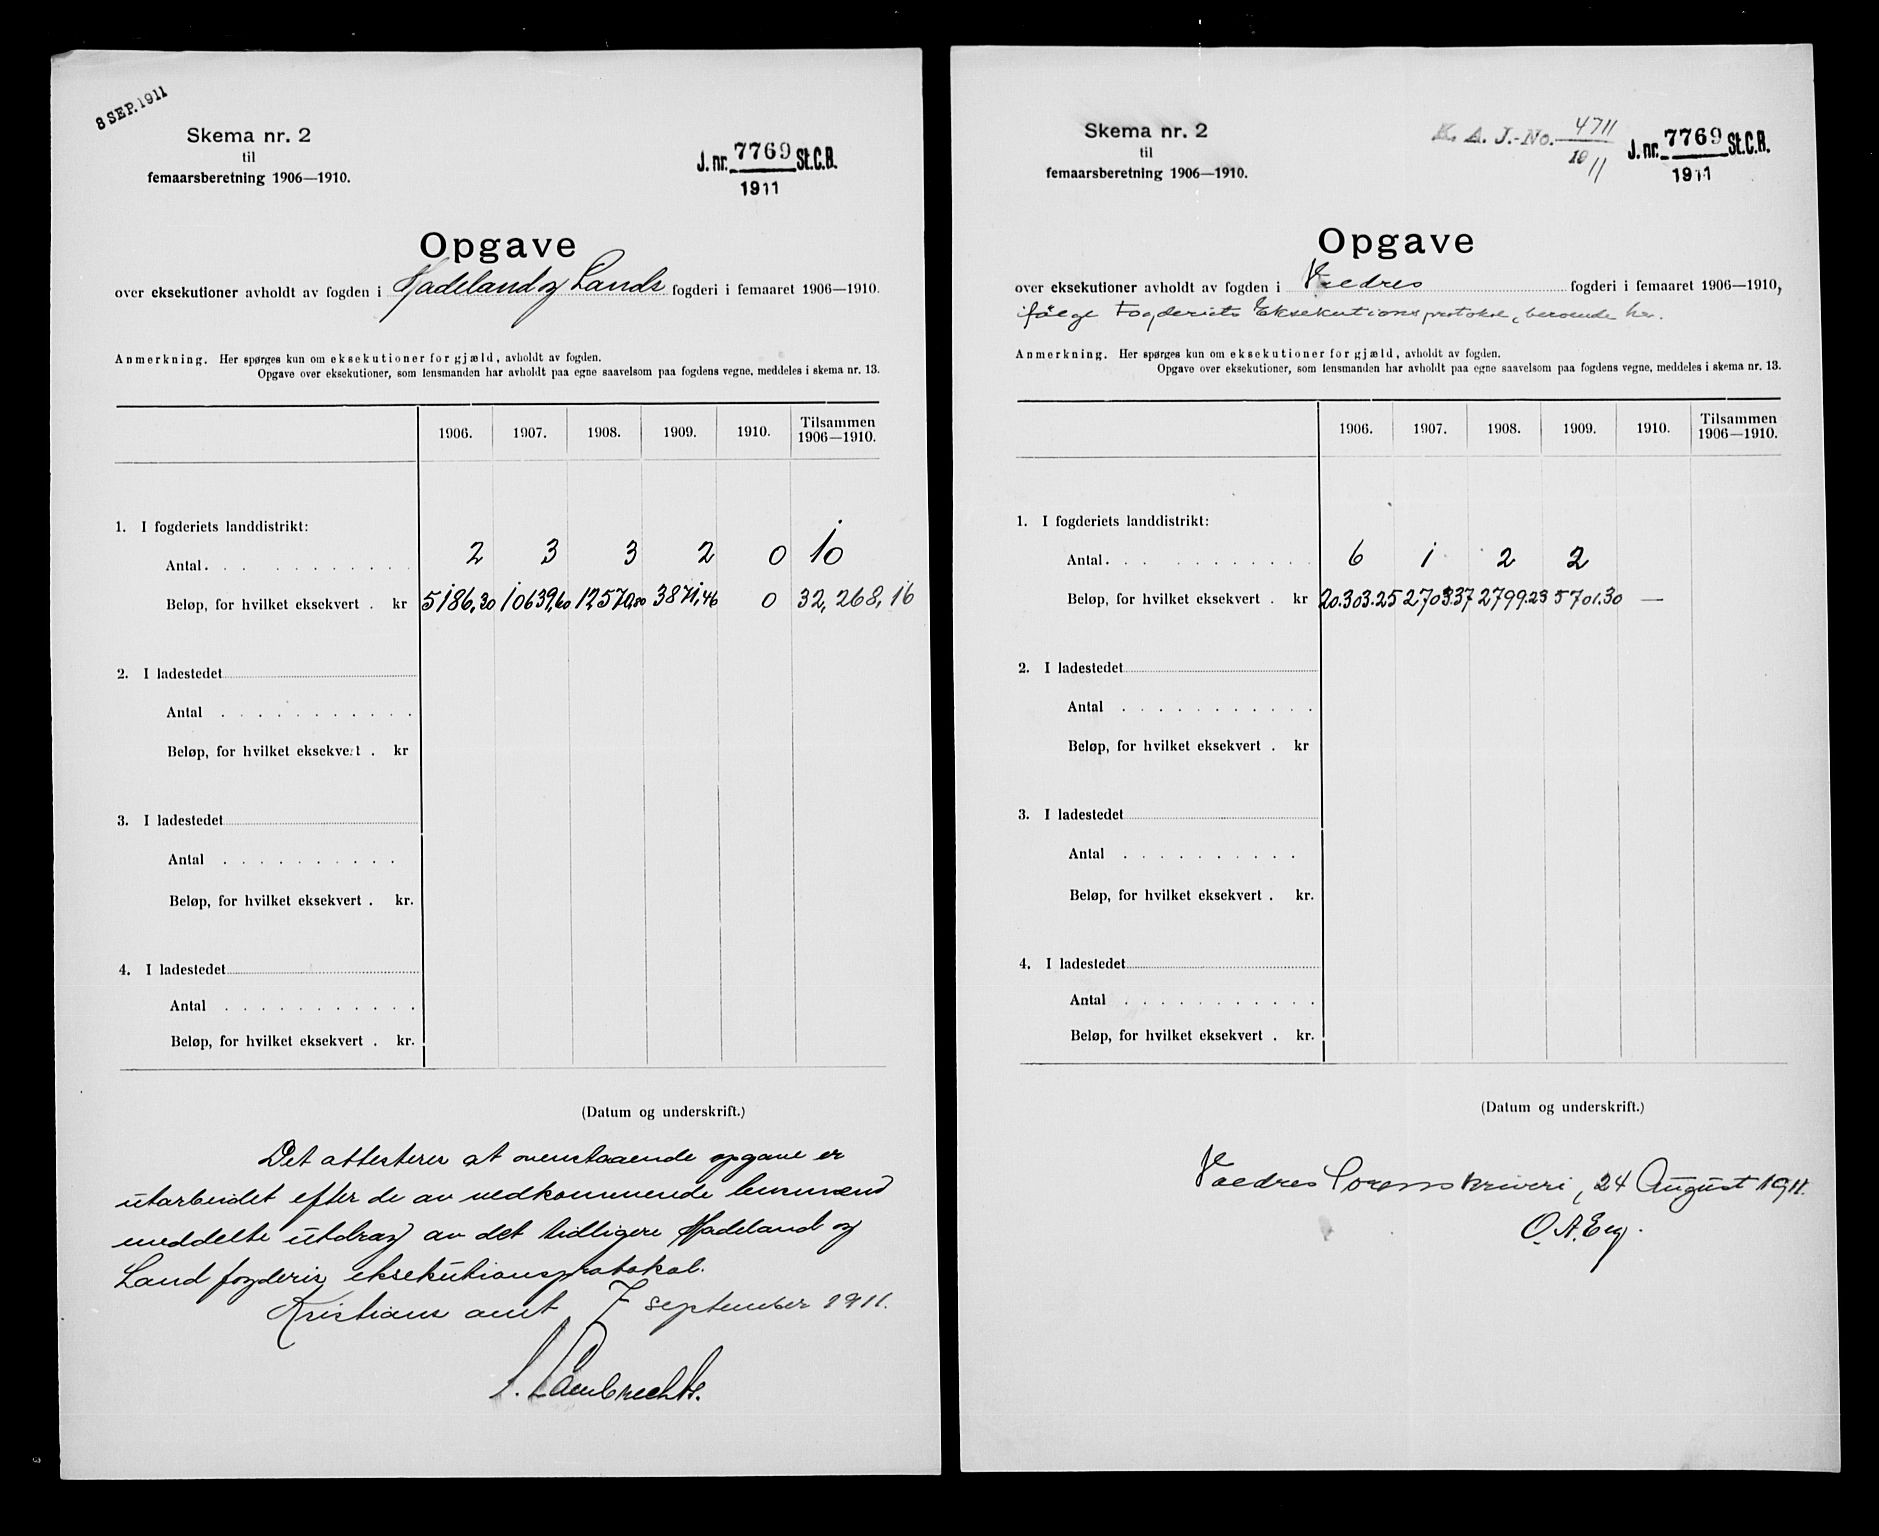 8 SEP. 1911
Skema nr. 2
til
femaarsberetning 1906—1910.
J. nr. 7769 St.C.B.
1911
Opgave
over eksekutioner avholdt av fogden i Hadeland og Lands fogderi i femaaret 1906—1910.
Anmerkning. Her spørges kun om eksekutioner for gjæld, avholdt av fogden.
Opgave over eksekutioner, som lensmanden har avholdt paa egne saavelsom paa fogdens vegne, meddeles i skema nr. 13.
1906. 1907. 1908. 1909. 1910. Tilsammen 1906—1910.
1. I fogderiets landdistrikt:
Antal . . . . . . . . . . 2 3 3 2 0 10
Beløp, for hvilket eksekvert . kr 5186,30 10639,60 12570,80 3871,46 0 32,268,16
2. I ladestedet
Antal . . . . . . . . . . .
Beløp, for hvilket eksekvert . kr
3. I ladestedet
Antal . . . . . . . . . .
Beløp, for hvilket eksekvert . kr.
4. I ladestedet
Antal . . . . . . . . . . .
Beløp, for hvilket eksekvert . kr.
(Datum og underskrift.)
Det attesterer at ovenstaaende opgave er
utarbeidet efter de av vedkommende lensmænd
meddelte utdrag av det tidligere Hadeland og
Land fogderis eksekutionsprotokol.
Kristians amt 7 september 1911.
Lambrechts.
Skema nr. 2
til
femaarsberetning 1906—1910.
K. A. J.-No. 4711
1911
J. nr. 7769 St.C.B.
1911
Opgave
over eksekutioner avholdt av fogden i Valdres fogderi i femaaret 1906—1910,
ifølge Fogderiets Eksekutionsprotokol, beroende her.
Anmerkning. Her spørges kun om eksekutioner for gjæld, avholdt av fogden.
Opgave over eksekutioner, som lensmanden har avholdt paa egne saavelsom paa fogdens vegne, meddeles i skema nr. 13.
1906. 1907. 1908. 1909. 1910. Tilsammen 1906—1910.
1. I fogderiets landdistrikt:
Antal . . . . . . . . . . 6 1 2 2
Beløp, for hvilket eksekvert . kr 20.303.25 2703.37 2799.23 5701.30 —
2. I ladestedet
Antal . . . . . . . . . . .
Beløp, for hvilket eksekvert . kr
3. I ladestedet
Antal . . . . . . . . . .
Beløp, for hvilket eksekvert . kr.
4. I ladestedet
Antal . . . . . . . . . . .
Beløp, for hvilket eksekvert . kr.
(Datum og underskrift.)
Valdres Sorenskriveri, 24 August 1911.
O. A. Eeg.